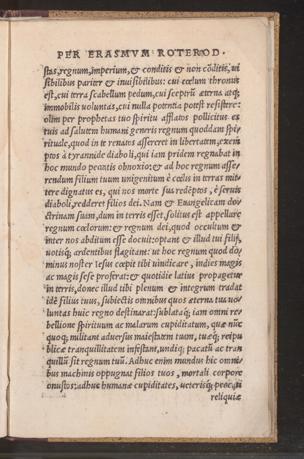 PER ERASMVM ROTEROD.
stas, regnum, imperium, & conditis & non cōditis, ui
sibilibus pariter & inuisibilibus: cui cœlum thronus
est, cui terra scabellum pedum, cui sceptrū æterna atq;
immobilis uoluntas, cui nulla potentia potest resistere:
olim per prophetas tuo spiritu afflatos pollicitus es
tuis ad salutem humani generis regnum quoddam spi
rituale, quod in te renatos assereret in libertatem, exem
ptos à tyrannide diaboli, qui iam pridem regnabat in
hoc mundo peccatis obnoxio: & ad hoc regnum asse-
rendum filium tuum unigenitum è cœlis in terras mit
tere dignatus es, qui nos morte sua redēptos, è seruis
diaboli, redderet filios dei. Nam & Euangelicam do
ctrinam suam, dum in terris esset, solitus est appellare
regnum cœlorum: & regnum dei, quod occultum &
inter nos abditum esse docuit: optant & illud tui filij,
uotisq; ardentibus flagitant: ut hoc regnum quod do
minus noster Iesus cœpit tibi uindicare, indies magis
ac magis sese proferat: & quotidie latius propagetur
in terris, donec illud tibi plenum & integrum tradat
idē filius tuus, subiectis omnibus quos æterna tua uo
luntas huic regno destinarat: sublataq; iam omni re-
bellione spirituum ac malarum cupiditatum, quæ nūc
quoq; militant aduersus maiestatem tuam, tuæq; reipu
blicæ tranquillitatem infestant, undiq; pacatū ac tran
quillū sit regnum tuū. Adhuc enim mundus hic omni
bus machinis oppugnat filios tuos, mortali corpore
onustos: adhuc humanæ cupiditates, ueterisq; peccati
reliquiæ